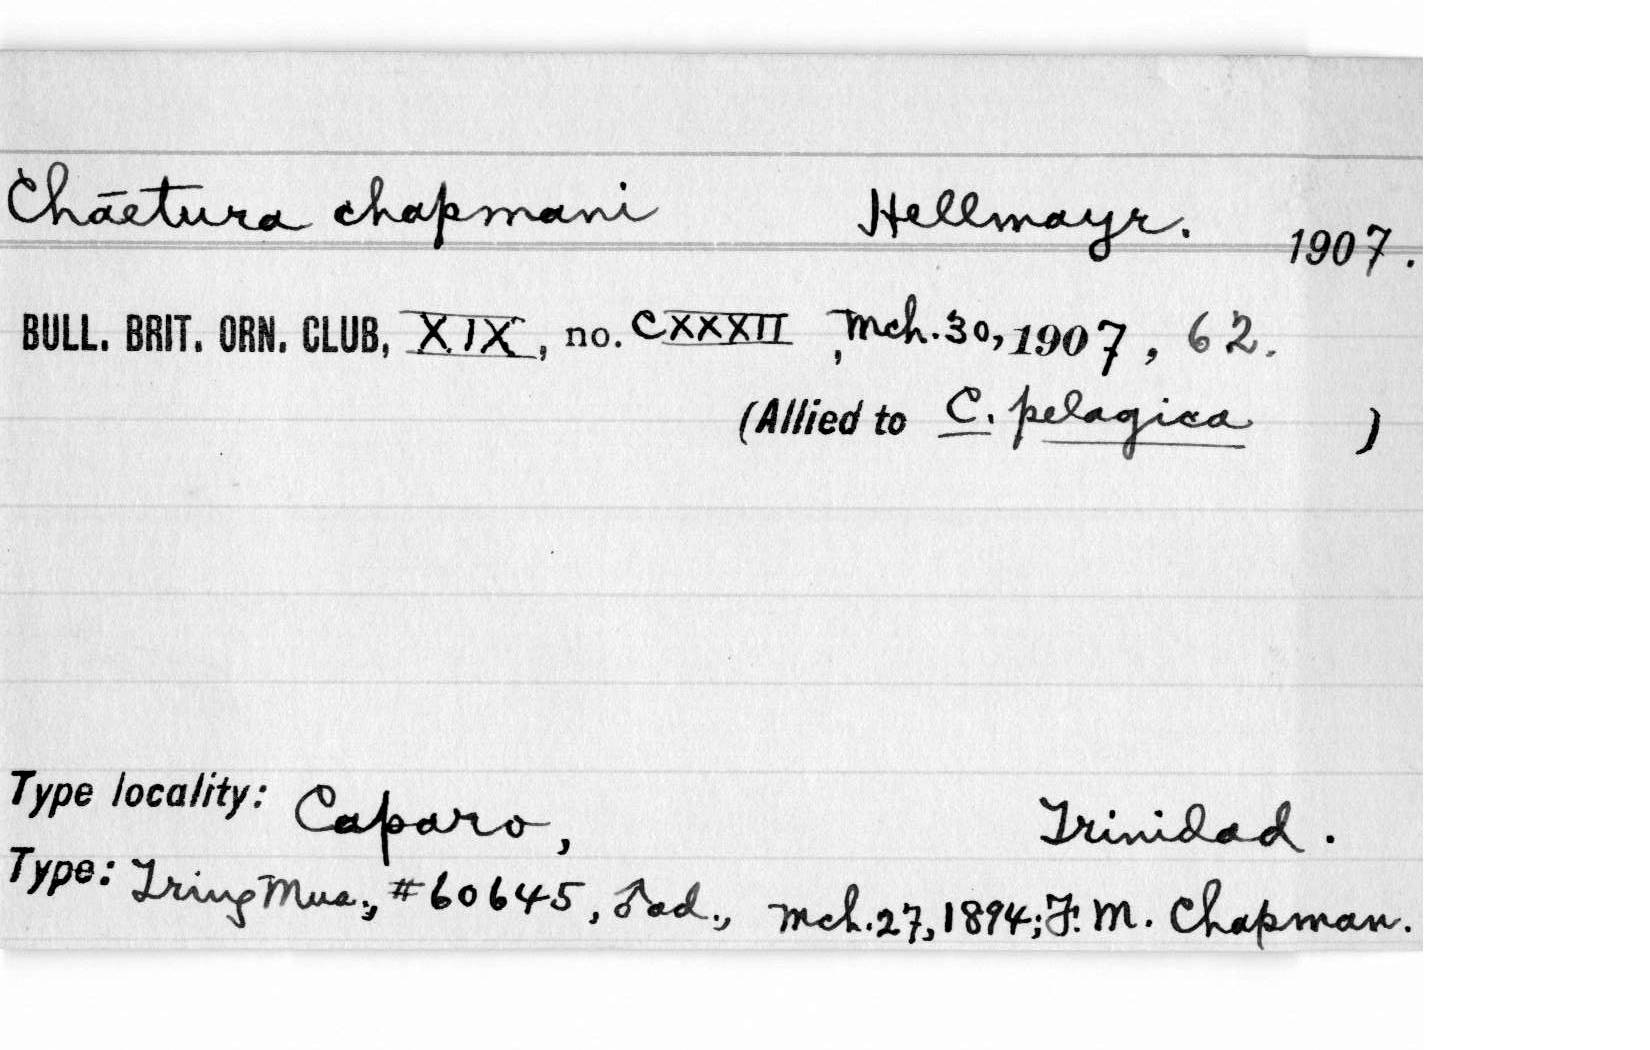 Chāetura chapmani Hellmayr. 1907.
BULL. BRIT. ORN. CLUB, XIX, no. CXXXII, Mch. 30, 1907, 62.
(Allied to C. pelagica )
Type locality: Caparo, Trinidad.
Type: Tring Mus., #60645, ♂ ad., Mch. 27, 1894; F. M. Chapman.